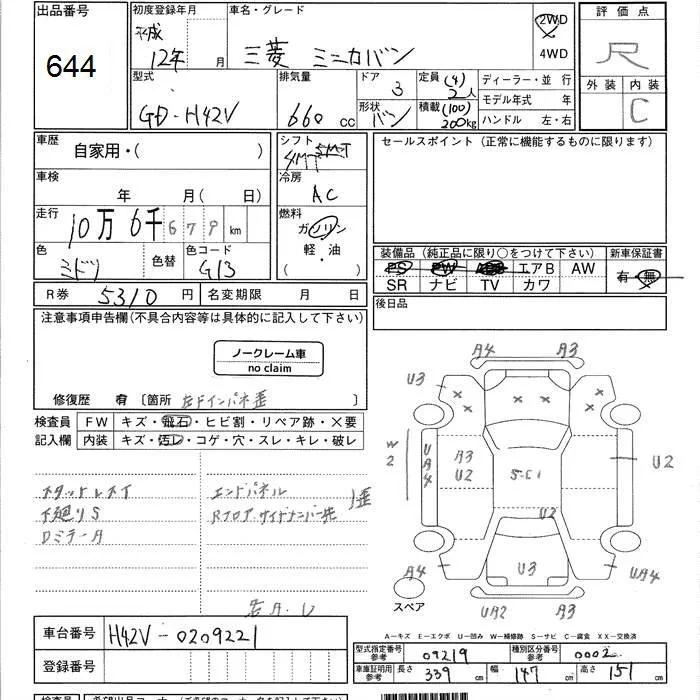 出品番号 初度登録年月 車名・グレード 評価点
644
平成 12年 月 三菱 ミニカバン 2WD 4WD R
外装 内装 C
型式 GD-H42V
排気量 660 cc
ドア 3 形状 バン
定員 (4) 2人 積載 (100) 200kg
ディーラー・並行
モデル年式 年
ハンドル 左・右
車歴 自家用・( )
シフト 4MT 5MT
セールスポイント (正常に機能するものに限ります)
車検 年 月( 日)
冷房 AC
走行 10万6千679 km
燃料 ガソリン 軽・油 ( ・ )
色 ミドリ 色替 色コード G13
装備品 (純正品に限り○をつけて下さい) 新車保証書
PS PW エアB AW 有・無
SR ナビ TV カワ
R券 5310 円 名変期限 月 日
後日品
注意事項申告欄(不具合内容等は具体的に記入して下さい)
ノークレーム車
no claim
修復歴 有 〔箇所 左Fインパネ歪 〕
検査員 FW キズ・飛石・ヒビ割・リペア跡・×要
記入欄 内装 キズ・汚レ・コゲ・穴・スレ・キレ・破レ
エンドパネル 歪
下廻りS
A4 A3
U3
W2 UA4 A3 U2 S-C1 U2
U2
U3
UA4
UA2 A3
スペア
A-キズ E-エクボ U-凹み W-補修跡 S-サビ C-腐食 XX-交換済
車台番号 H42V-0209221
型式指定番号 参考 09219 種別区分番号 参考 0002
登録番号
車庫証明用 参考 長さ 339 cm 幅 147 cm 高さ 151 cm